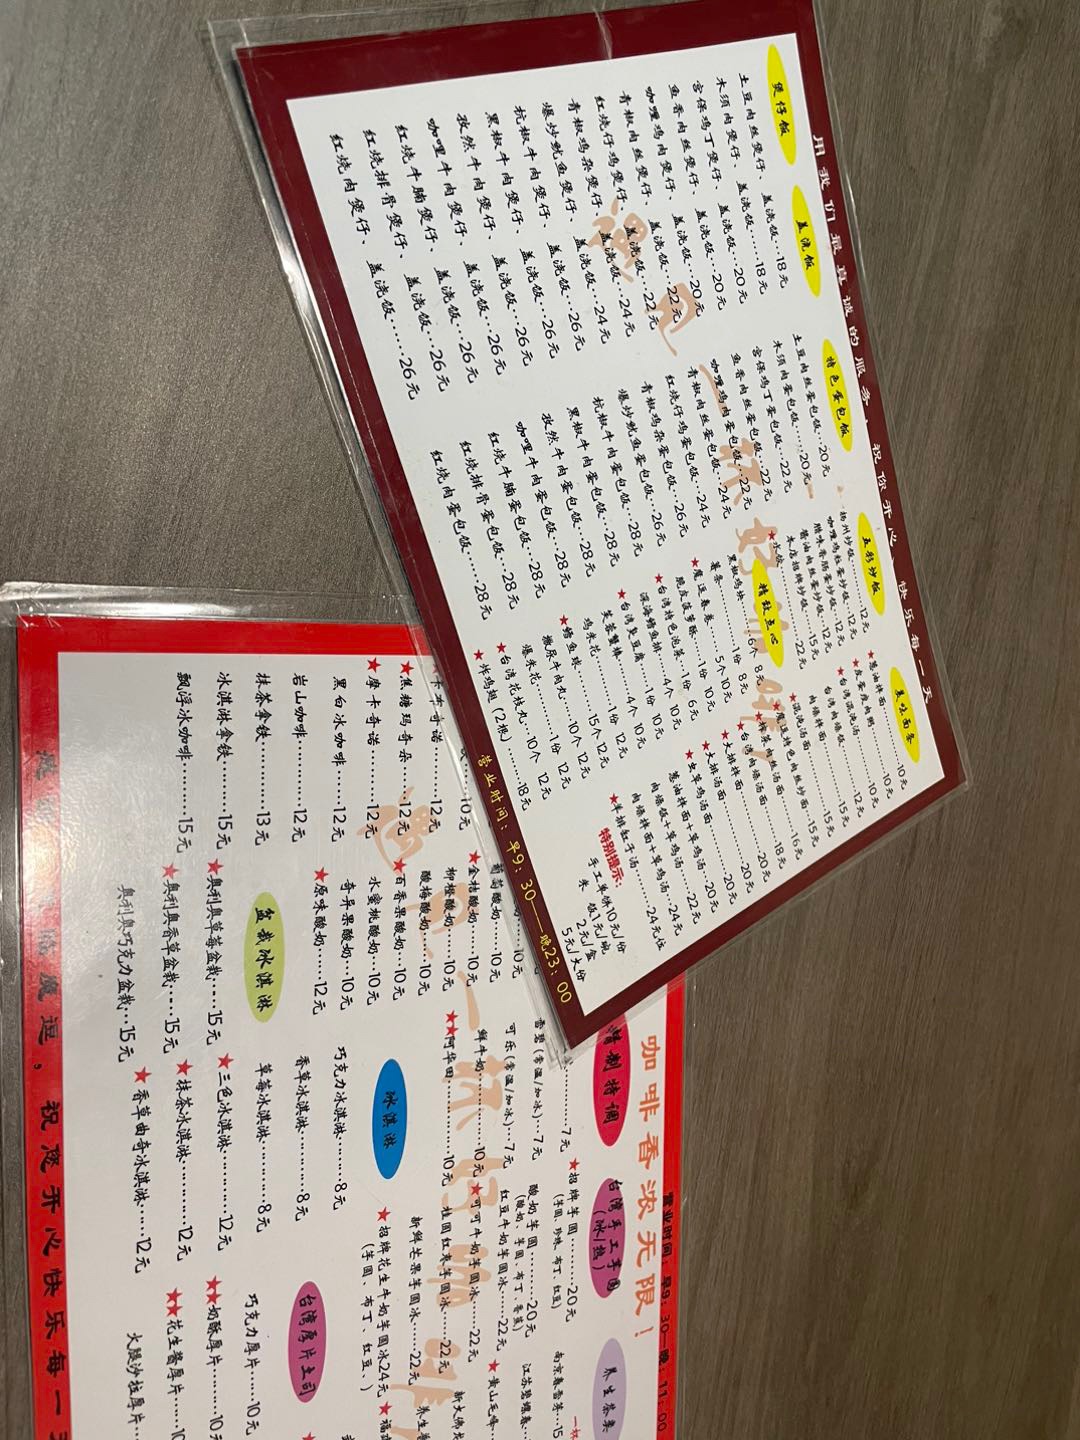 用我们最真诚的服务,祝你开心、快乐每一天
煲仔饭
盖浇饭
土豆肉丝煲仔、盖浇饭……18元
木须肉煲仔、盖浇饭……18元
宫保鸡丁煲仔、盖浇饭…20元
鱼香肉丝煲仔、盖浇饭…20元
咖喱鸡肉煲仔、盖浇饭…20元
青椒肉丝煲仔、盖浇饭…22元
红烧仔鸡煲仔、盖浇饭…22元
青椒鸡杂煲仔、盖浇饭…24元
爆炒鱿鱼煲仔、盖浇饭…24元
杭椒牛肉煲仔、盖浇饭…26元
黑椒牛肉煲仔、盖浇饭…26元
孜然牛肉煲仔、盖浇饭…26元
咖喱牛肉煲仔、盖浇饭…26元
红烧牛腩煲仔、盖浇饭…26元
红烧排骨煲仔、盖浇饭…26元
红烧肉煲仔、盖浇饭……26元
特色蛋包饭
土豆肉丝蛋包饭…20元
木须肉蛋包饭……20元
宫保鸡丁蛋包饭…22元
鱼香肉丝蛋包饭…22元
咖喱鸡肉蛋包饭…22元
青椒肉丝蛋包饭…24元
红烧仔鸡蛋包饭…24元
青椒鸡杂蛋包饭…26元
爆炒鱿鱼蛋包饭…26元
杭椒牛肉蛋包饭…28元
黑椒牛肉蛋包饭…28元
孜然牛肉蛋包饭…28元
咖喱牛肉蛋包饭…28元
红烧牛腩蛋包饭…28元
红烧排骨蛋包饭…28元
红烧肉蛋包饭……28元
五彩炒饭
扬州炒饭……12元
咖喱鸡粒蛋炒饭…12元
腊味香肠蛋炒饭…12元
酱油肉丝蛋炒饭…15元
本店招牌炒饭……22元
精致点心
6个 8元
黑椒鸡块……1份 8元
薯条……5个10元
★魔豆卷卷……1份 10元
脆皮菠萝酥……1份 6元
★台湾特色泡菜……4个 10元
深海鳕鱼排……1份 10元
★台湾臭豆腐……4个 10元
芙蓉蟹棒……1份 12元
鸡米花……15个 12元
★鳕鱼球……10个 12元
撒尿牛肉丸……1份 12元
爆米花……10个 12元
★台湾花枝丸……
★炸鸡翅(2根)……18元
美味面条
★葱油拌面……10元
★皮蛋瘦肉粥……10元
★台湾混浇汤……12元
台湾肉燥饭……15元
肉燥拌面……15元
★混浇汤面……15元
★魔豆特色肉丝炒面……16元
★榨菜肉丝汤面……18元
★台湾肉燥汤面……20元
★大排拌面……20元
★大排汤面……20元
★虫草鸡汤面……22元
葱油拌面+草鸡汤……24元
肉燥饭+草鸡汤……24元
肉燥拌面+草鸡汤……
★羊排肚子汤……24元位
特别提示:
手工单饼10元/份
米饭1元/碗
2元/盒
5元/大份
营业时间:早9:30——晚23:00
咖啡香浓无限!
营业时间:早9:30—晚:11:00
……12元
★焦糖玛奇朵……12元
★摩卡奇诺……12元
黑白冰咖啡……12元
岩山咖啡……12元
抹茶拿铁……13元
冰淇淋拿铁……15元
飘浮冰咖啡……15元
葡萄酸奶……10元
★金桔酸奶……10元
柳橙酸奶……10元
酸梅酸奶……10元
★百香果酸奶…10元
水蜜桃酸奶…10元
奇异果酸奶…10元
★原味酸奶……12元
盆栽冰淇淋
★奥利奥草莓盆栽……15元
★奥利奥香草盆栽……15元
奥利奥巧克力盆栽…15元
特制特调
……7元
雪碧(常温/加冰)…7元
可乐(常温/加冰)…7元
鲜牛奶……10元
★★阿华田……10元
冰淇淋
巧克力冰淇淋……8元
香草冰淇淋……8元
草莓冰淇淋……8元
★三色冰淇淋……12元
★抹茶冰淇淋……12元
★香草曲奇冰淇淋……12元
台湾手工芋圆
(冰/热)
★招牌芋圆……20元
(芋圆、珍珠、布丁、红豆)
酸奶芋圆……20元
(酸奶、芋圆、布丁、香蕉)
红豆牛奶芋圆冰……22元
★可可牛奶芋圆冰……22元
桂圆红枣芋圆冰……22元
新鲜芒果芋圆冰……22元
★招牌花生牛奶芋圆冰24元
(芋圆、布丁、红豆、)
台湾厚片土司
巧克力厚片……10元
★★奶酥厚片……10元
★★花生酱厚片……10
火腿沙拉厚片…
养生茶类
一杯
南京春香茅…15
江苏碧螺春…
★黄山毛峰…
新文佛
养生
★福
祝您开心快乐每一天